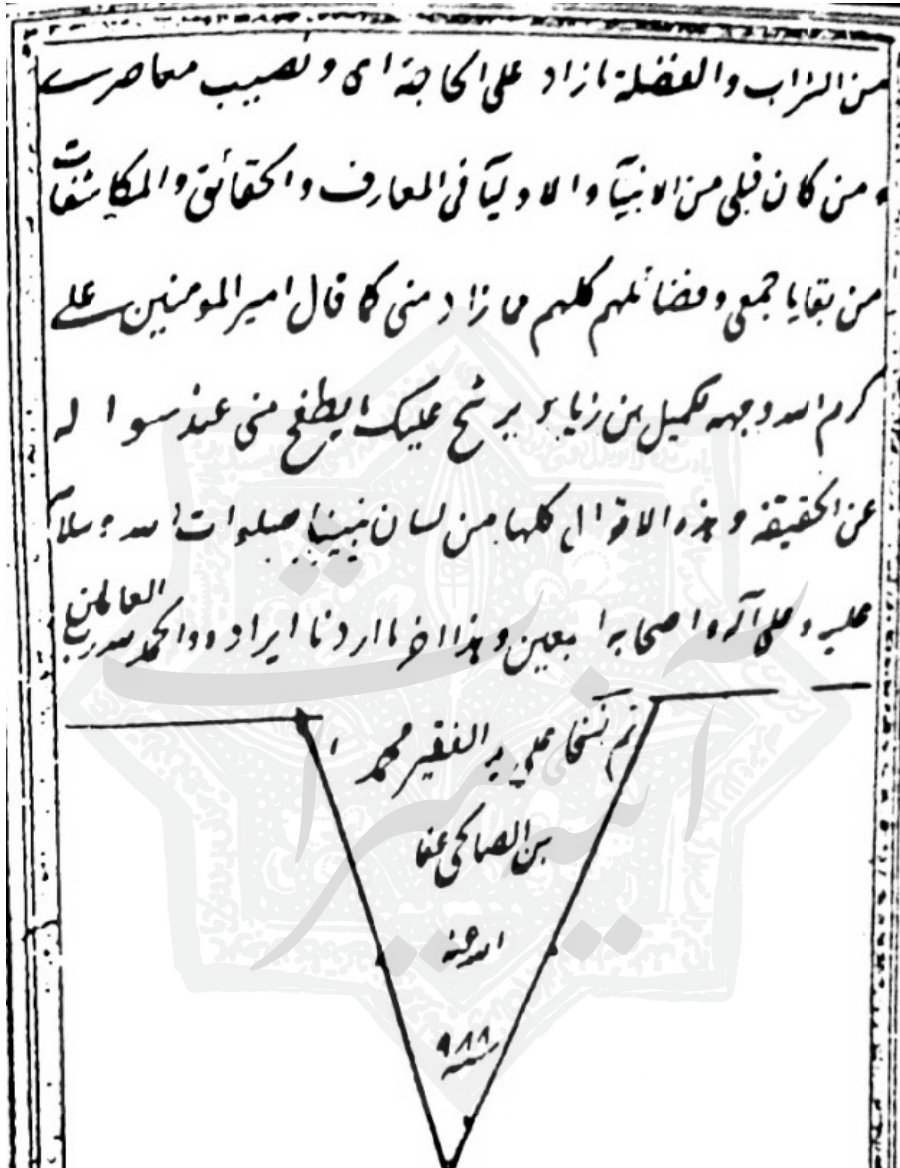 من الشراب والفضلة ما زاد على الحاجة اى و نصيب معاصرى
و من كان قبلى من الانبيآ و الاوليآ فى المعارف و الحقائق و المكاشفات
من بقايا جمعى و فضائلهم كلهم مما زاد منى كما قال امير المومنين على
كرم الله وجهه لكميل بن زياد يرشح عليك ما يطفح منى عند سواله
عن الحقيقة و هذه الاقوال كلها من لسان نبينا صلوات الله و سلامه
عليه و على آله و اصحابه اجمعين و هذا اخر ما اردنا ايراده و الحمد لله رب العالمين
تم نسخا على يد الفقير محمد
بن الصالحى عفا
الله عنه
سنة ٩٨٨